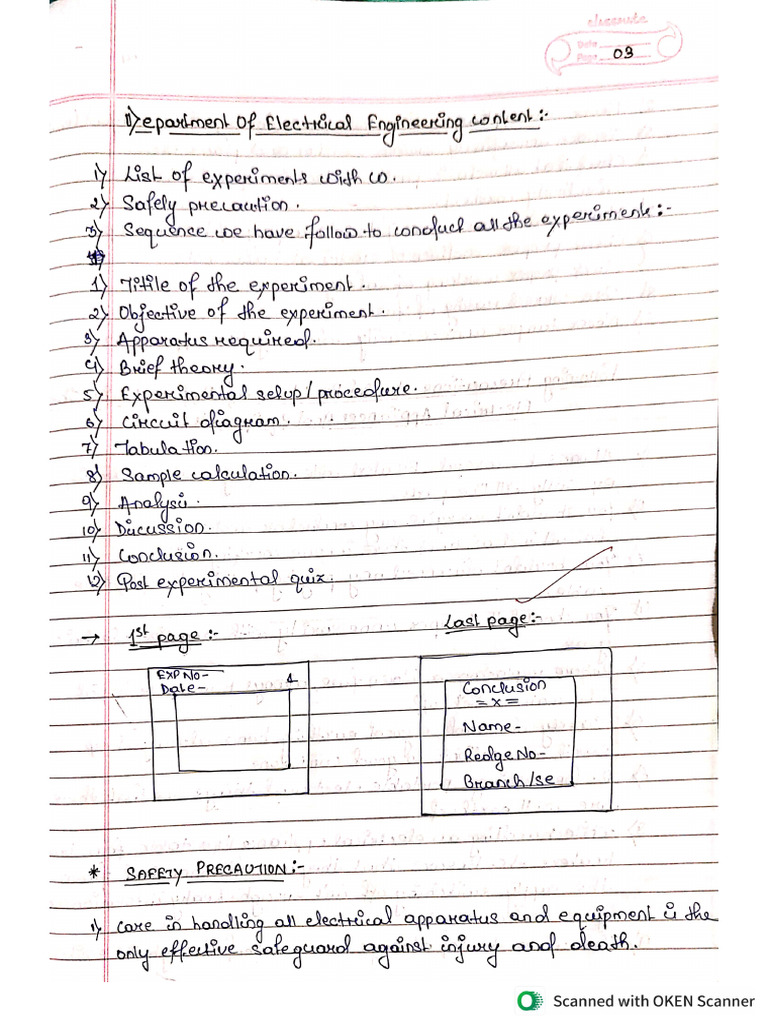 classmate
Date
Page 03
Department Of Electrical Engineering content:-
1) List of experiments with co.
2) Safely precaution.
3) Sequence we have follow to conduct all the experiment:-
1) Titile of the experiment.
2) Objective of the experiment.
3) Apparatus required.
4) Brief theory.
5) Experimental setup/procedure.
6) Circuit diagram.
7) Tabulation.
8) Sample calculation.
9) Analysis.
10) Discussion.
11) Conclusion.
12) Post experimental quiz.
→ 1st page:-
Last page:-
EXP No- 1
Date-
Conclusion
=x=
Name-
Redge No-
Branch/se
* SAFETY PRECAUTION:-
1) Care in handling all electrical apparatus and equipment is the
only effective safeguard against injury and death.
Scanned with OKEN Scanner